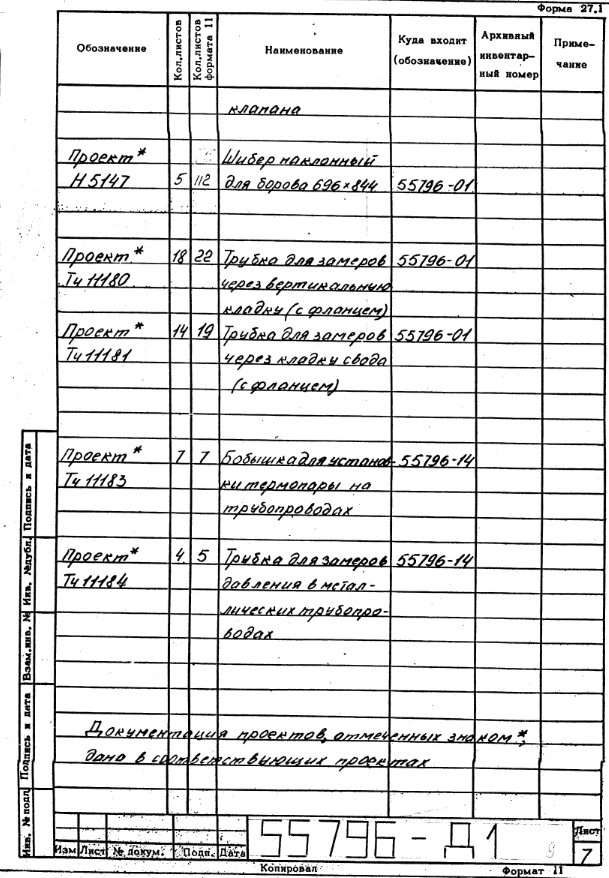 Форма 27.1
Обозначение Кол.листов Кол.листов формата 11 Наименование Куда входит (обозначение) Архивный инвентар-ный номер Приме-чание
клапана
Проект* Шибер наклонный
Н5147 5 112 для борова 696×844 55796-01
Проект* 18 22 Трубка для замеров 55796-01
Ти 11180 через вертикальную
кладку (с фланцем)
Проект* 14 19 Трубка для замеров 55796-01
Ти 11181 через кладку свода
(с фланцем)
Проект* 7 7 Бобышка для установ- 55796-14
Ти 11183 ки термопары на
трубопроводах
Проект* 4 5 Трубка для замеров 55796-14
Ти 11184 давления в метал-
лических трубопро-
водах
Документация проектов, отмеченных знаком *,
дана в соответствующих проектах
Инв. №подл. Подпись и дата Взам.инв. № Инв. №дубл. Подпись и дата
55796-Д1 9 Лист
7
Изм Лист № докум. Подп. Дата
Копировал Формат 11